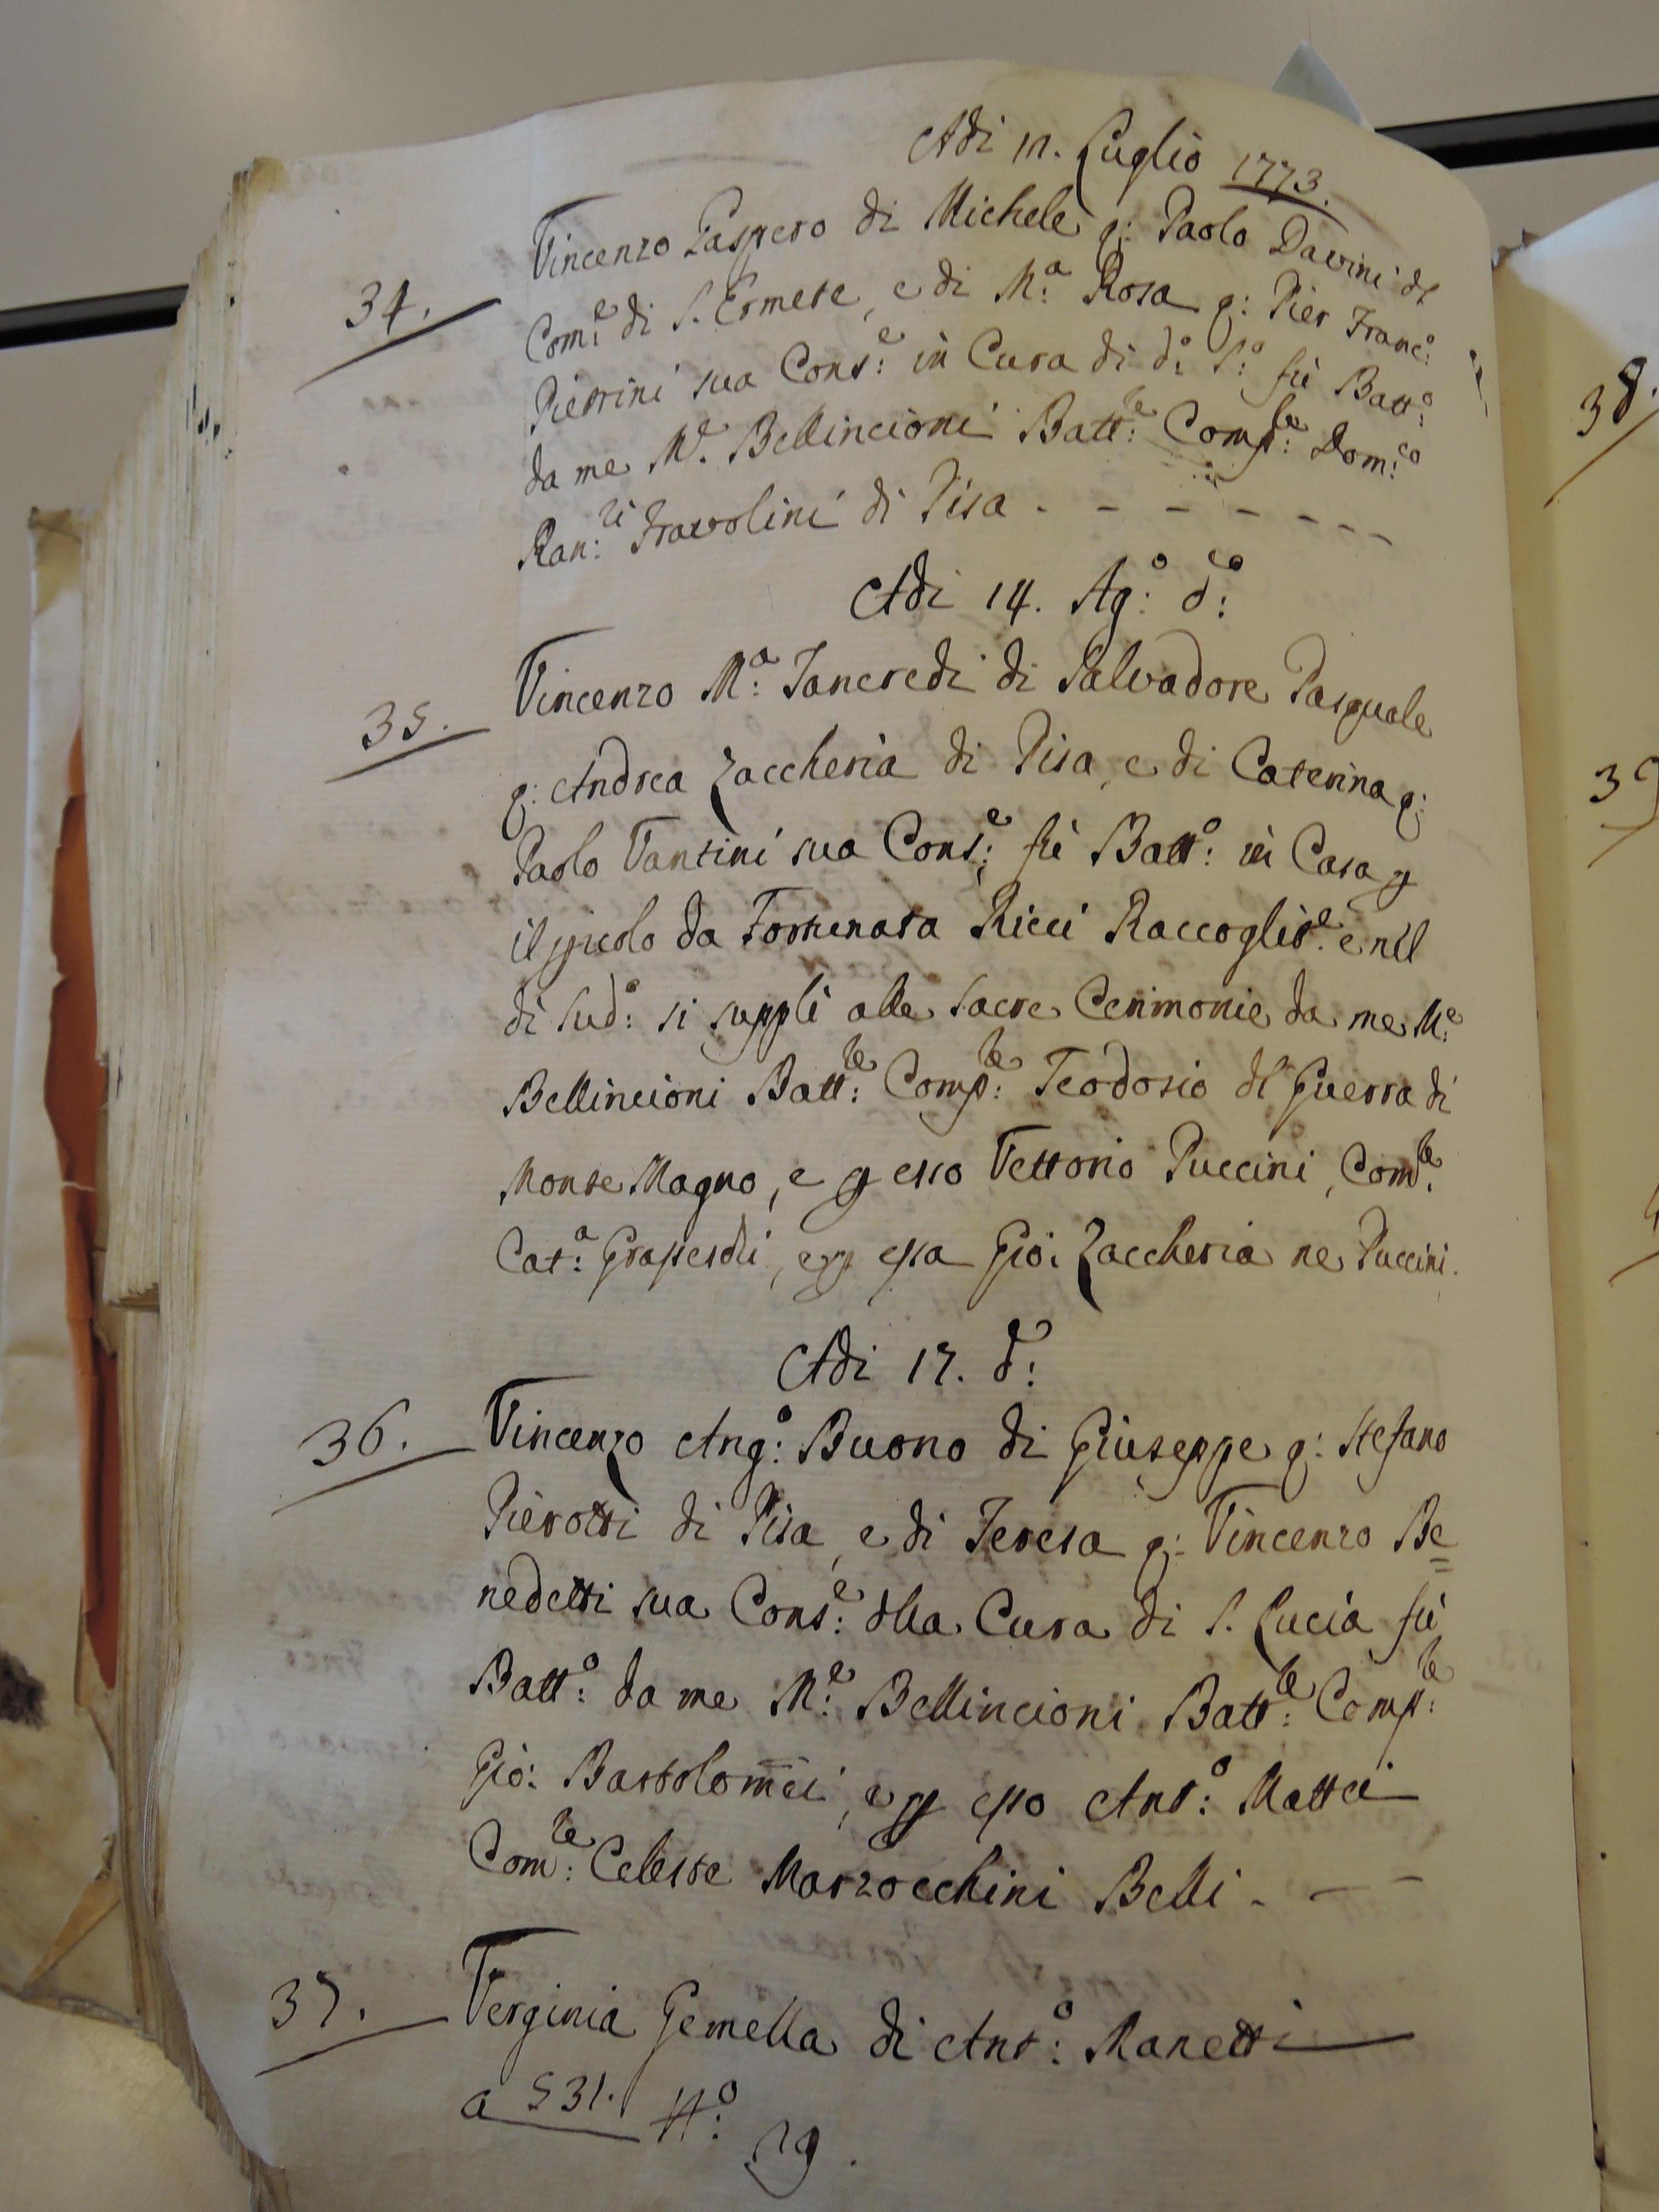 Adi 17. Luglio 1773.
34.
Vincenzo Gaspero di Michele q: Paolo Davini dl
Com:e di S. Ermete, e di M:a Rosa q: Pier Franc:o
Pierrini sua Cons:e in Cura di d:o S:o fù Batt:o
da me M:e Bellincioni Batt:le Comp:le Dom:co
Ran:ri Travolini di Pisa - - - - - - -
Adi 14. Ag:o d:o
35.
Vincenzo M:a Tancredi di Salvadore Pasquale
q: Andrea Zaccheria di Pisa, e di Caterina q:
Paolo Vantini sua Cons:e fù Batt:o in Casa p
il picolo da Fortunata Ricci Raccoglit:e e nel
dì Sud:o si supplì alle Sacre Cerimonie da me M:e
Bellincioni Batt:le Comp:le Teodosio dl Guerra di
Monte Magno, e p esso Vettorio Puccini, Com:le
Cat:a Grasseschi, e p essa Gio: Zaccheria ne Puccini.
Adi 17. d:o
36.
Vincenzo Ang:o Buono di Giuseppe q: Stefano
Pierotti di Pisa, e di Teresa q: Vincenzo Be=
nedetti sua Cons:e dlla Cura di S. Lucia fù
Batt:o da me M:e Bellincioni Batt:le Comp:le
Gio: Bartolomei, e p esso Ant:o Mattei
Com:le Celeste Marzocchini Belli - - -
37.
Verginia Gemella di Ant:o Manetti
a 531. N:o 29.
38.
39